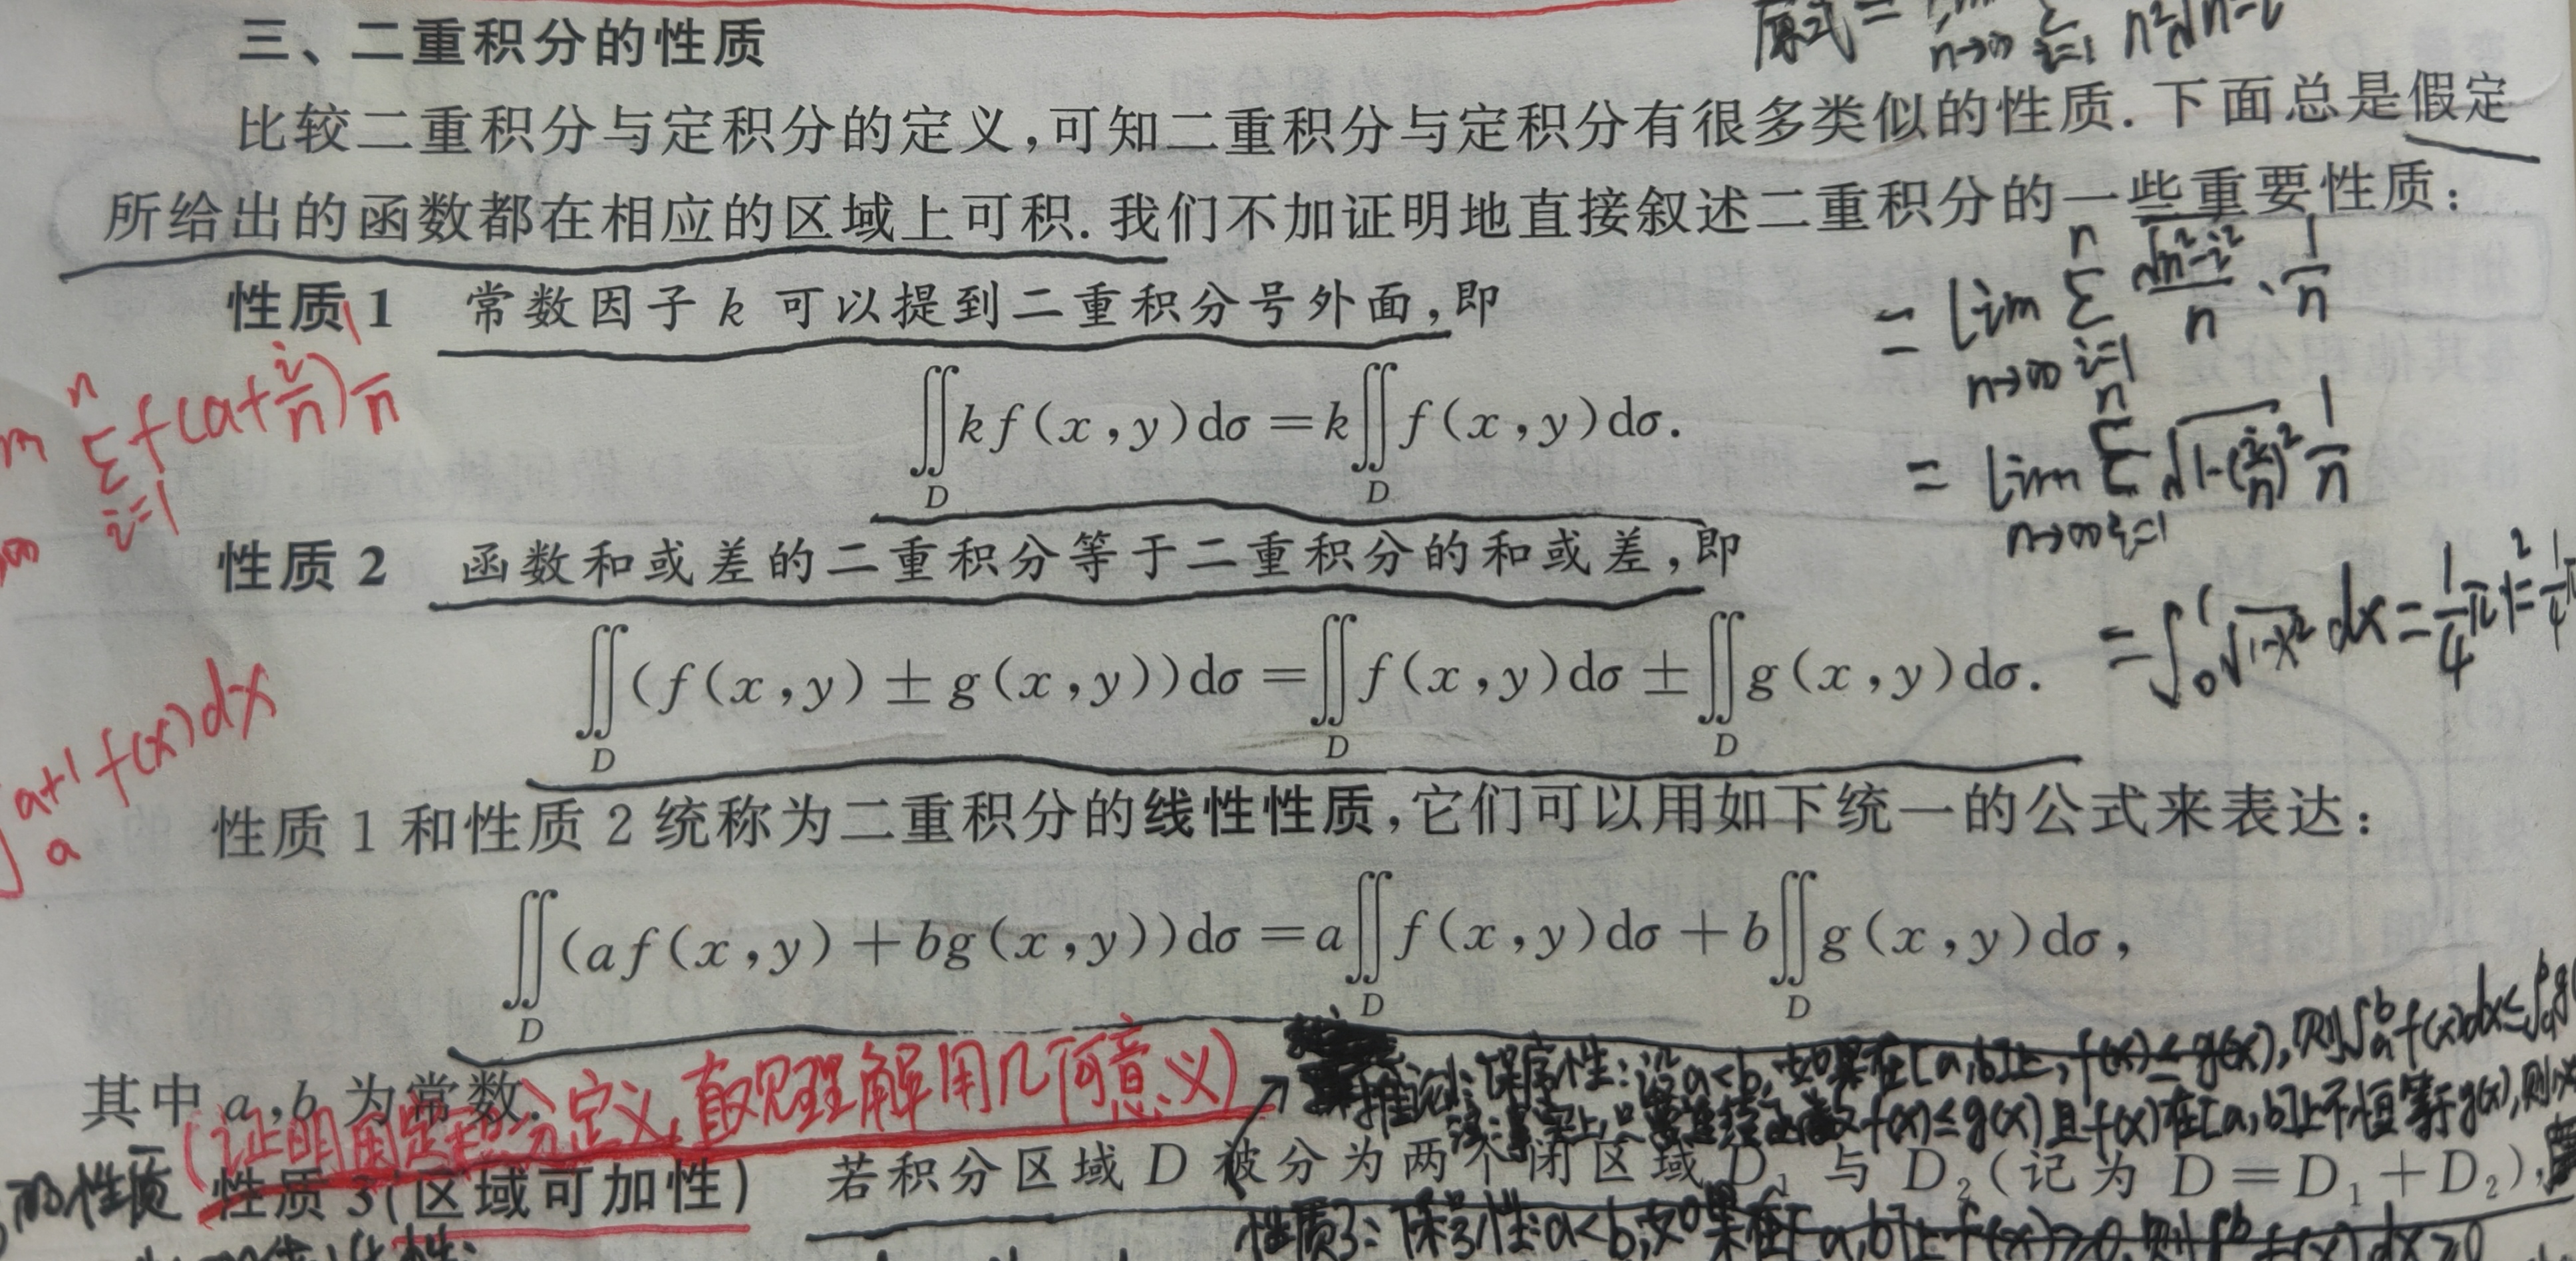 三、二重积分的性质
比较二重积分与定积分的定义,可知二重积分与定积分有很多类似的性质.下面总是假定
所给出的函数都在相应的区域上可积.我们不加证明地直接叙述二重积分的一些重要性质:
性质1 常数因子 k 可以提到二重积分号外面,即
∬_D kf(x,y)dσ=k∬_D f(x,y)dσ.
性质2 函数和或差的二重积分等于二重积分的和或差,即
∬_D (f(x,y)±g(x,y))dσ=∬_D f(x,y)dσ±∬_D g(x,y)dσ.
性质1和性质2统称为二重积分的线性性质,它们可以用如下统一的公式来表达:
∬_D (af(x,y)+bg(x,y))dσ=a∬_D f(x,y)dσ+b∬_D g(x,y)dσ,
其中a,b为常数.
性质3(区域可加性) 若积分区域D被分为两个闭区域D₁与D₂(记为D=D₁+D₂),
原式=
=lim_{n→∞} ∑_{i=1}^{n} √(n²-i²)/n · 1/n
=lim_{n→∞} ∑_{i=1}^{n} √(1-(i/n)²) 1/n
=∫₀¹√(1-x²) dx=1/4 π1²=1/4π
∑_{i=1}^{n} f(a+i/n) 1/n
∫_a^{a+1} f(x)dx
(证明用定积分定义,直观理解用几何意义)
推论: 保序性:设a<b,如果在[a,b]上,f(x)≤g(x),则∫_a^b f(x)dx≤∫_a^b g(
f(x)≤g(x)且f(x)在[a,b]上不恒等于g(x),则
的性质
性质3:保号性:a<b,如果在[a,b]上f(x)≥0,则∫_a^b f(x)dx≥0